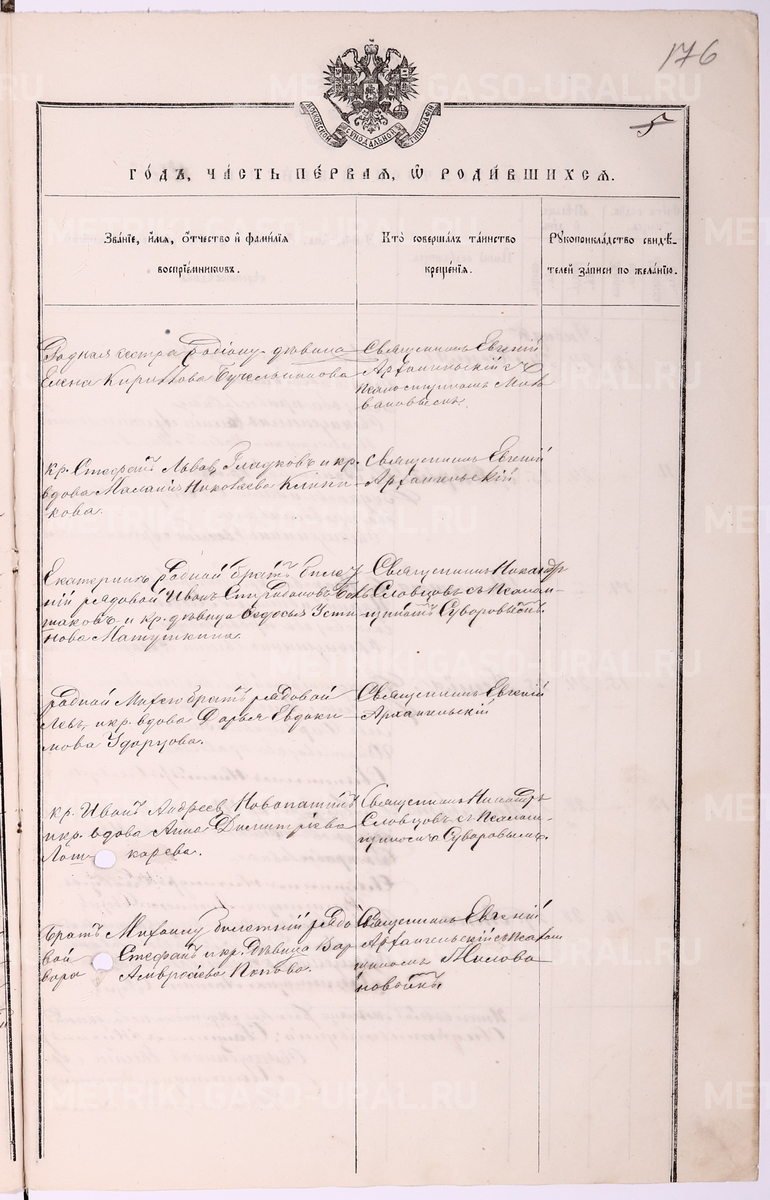 176
МОСКОВСКОЙ СѴНОДАЛЬНОЙ ТИПОГРАФІИ
5
ГО́ДЪ, ЧА́СТЬ ПЕ́РВАЯ, Ѿ РОДИ́ВШИХСЯ.
Зва́нїе, и҆́мя, ѻ҆́тчество и҆ фами́лїя
воспрїе́мниковъ.
Кто̀ соверша́лъ та́инство
креще́нїя.
Рꙋкоприкла́дство свидѣ́-
телей за́писи по жела́нїю.
Родная сестра Родіону девица
Елена Кириллова
Священникъ Евгений
Архангельскій съ
псаломщикомъ Мило
вановымъ.
кр. Стефанъ Львовъ Гладковъ и кр.
вдова Маланія Николаева
кова.
Священникъ Евгеній
Архангельскій.
Екатерины родной братъ билет
ный рядовой Иванъ Спиридоновъ
шаковъ и кр. девица Ѳедосья Усти
нова Матушкина.
Священникъ Никандръ
Словцовъ съ псалом-
щикомъ Суворовымъ.
родной братъ рядовой
Левъ и кр. вдова Дарья Евдоки-
мова Удорцова.
Священникъ Евгеній
Архангельскій
кр. Иванъ Андреевъ Новопашинъ
и кр. вдова Анна Димитріева
карева.
Священникъ Никандръ
Словцовъ съ псалом-
щикомъ Суворовымъ.
Братъ Михаилу билетный рядо
вой Стефанъ и кр. девица Вар
вара Амвросіева Попова.
Священникъ Евгеній
Архангельскій съ псалом
щикомъ Милова
новымъ.